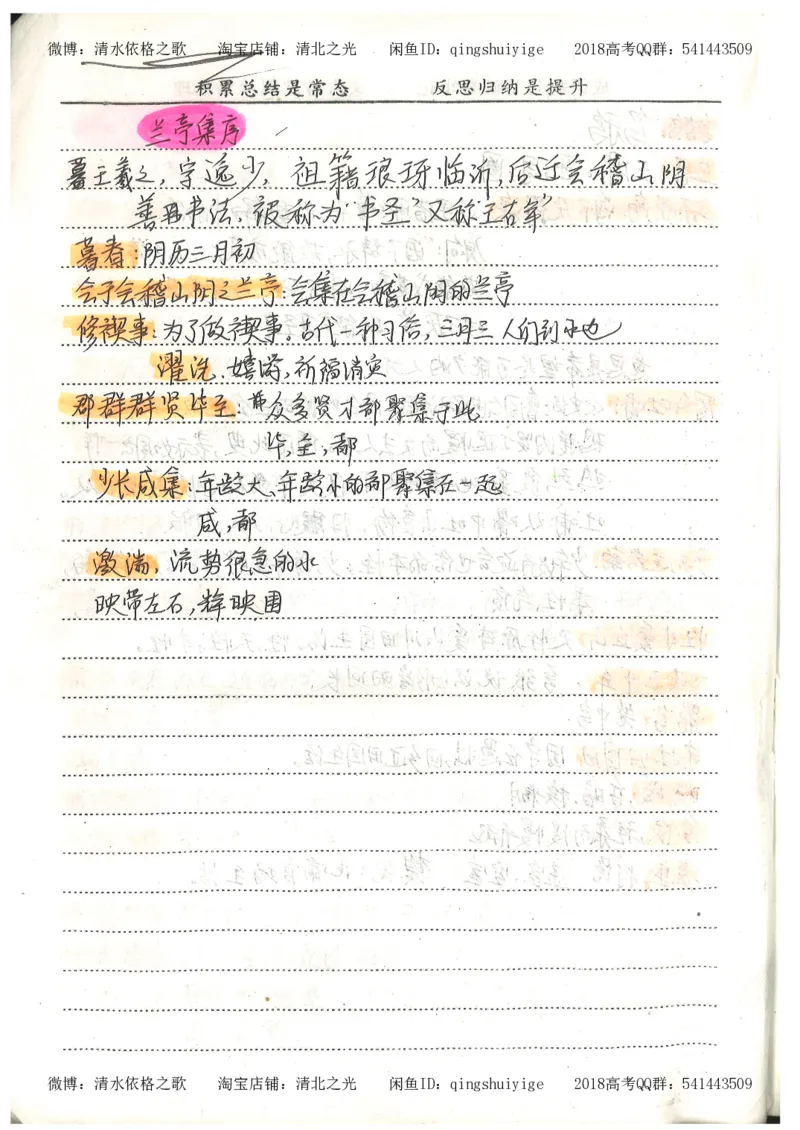 微博：清水依格之歌 淘宝店铺：清北之光 闲鱼ID：qingshuiyige 2018高考QQ群：541443509
积累总结是常态 反思归纳是提升
兰亭集序
王羲之，字逸少，祖籍琅玡临沂，后迁会稽山阴
善书法，被称为“书圣”又称王右军”
暮春：阴历三月初
会于会稽山阴之兰亭：会集在会稽山阴的兰亭
修禊事：为了做禊事。古代一种习俗，三月三 人们到水边
濯洗、嬉游，祈福消灾
群贤毕至：众多贤才都聚集于此
毕，至，都
少长咸集：年龄大、年龄小的都聚集在一起
咸，都
激湍，流势很急的水
映带左右，辉映围
微博：清水依格之歌 淘宝店铺：清北之光 闲鱼ID：qingshuiyige 2018高考QQ群：541443509